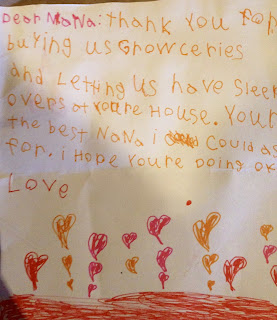 Dear NaNa: thank you for
buying us Growceries
and Letting us have sleep
overs at you're House. Your
the best NaNa i could as
for. i Hope you're doing ok
Love